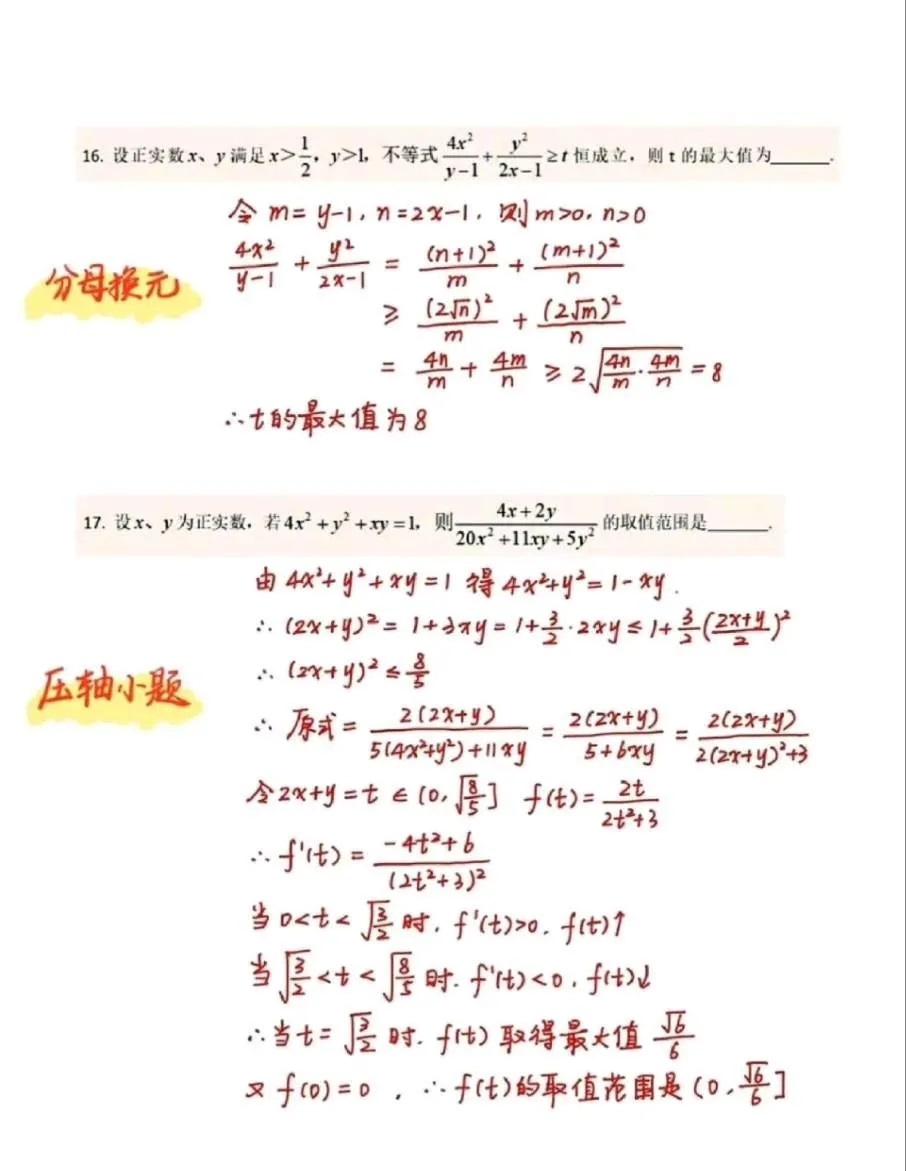 16. 设正实数x、y满足x>1/2，y>1，不等式4x²/(y−1)+y²/(2x−1)≥t恒成立，则t的最大值为______.
令 m=y-1，n=2x-1，则m>0，n>0
分母换元
4x²/(y-1) + y²/(2x-1) = (n+1)²/m + (m+1)²/n
≥ (2√n)²/m + (2√m)²/n
= 4n/m + 4m/n ≥ 2√(4n/m · 4m/n) = 8
∴t的最大值为8
17. 设x、y为正实数，若4x²+y²+xy=1，则(4x+2y)/(20x²+11xy+5y²)的取值范围是______.
由 4x²+y²+xy=1 得 4x²+y²=1-xy.
∴ (2x+y)²=1+3xy=1+3/2·2xy≤1+3/2((2x+y)/2)²
∴ (2x+y)²≤8/5
压轴小题
∴ 原式= 2(2x+y)/(5(4x²+y²)+11xy) = 2(2x+y)/(5+6xy) = 2(2x+y)/(2(2x+y)²+3)
令2x+y=t∈(0,√(8/5)] f(t)=2t/(2t²+3)
∴ f'(t)= (-4t²+6)/(2t²+3)²
当0<t<√(3/2)时. f'(t)>0. f(t)↑
当√(3/2)<t<√(8/5)时. f'(t)<0. f(t)↓
∴当t=√(3/2)时. f(t)取得最大值√6/6
又f(0)=0，∴f(t)的取值范围是(0,√6/6]